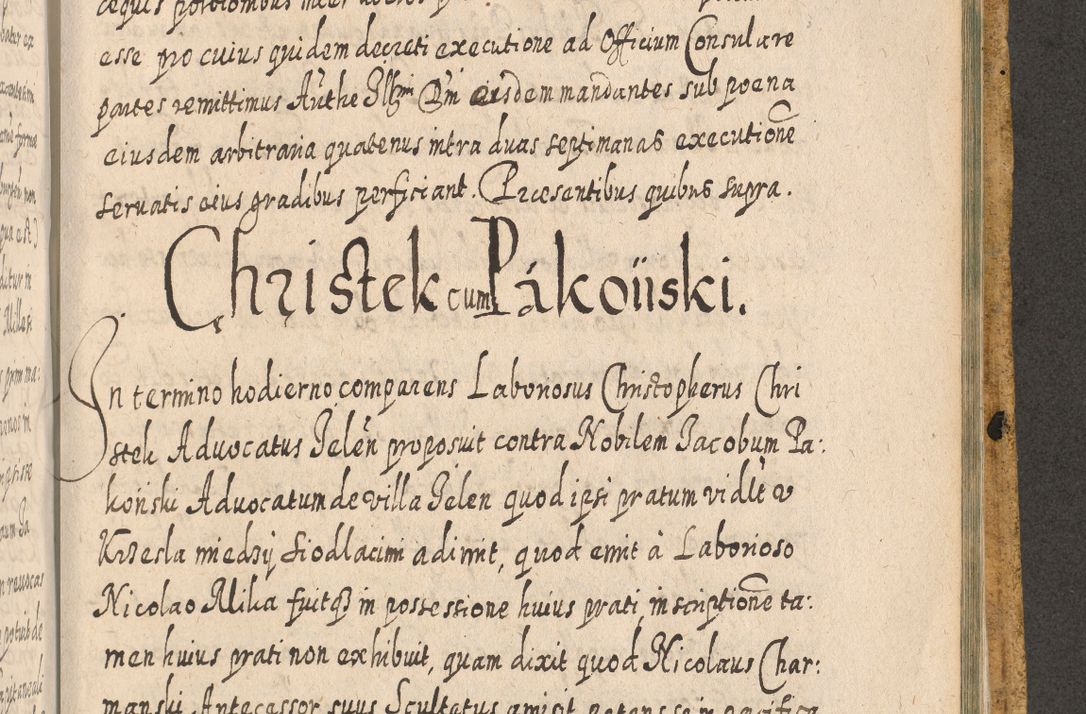 esse pro cuius quidem decreti executione ad Officium Consulare
partes remittimus Authe Illmi Dni eiusdem mandantes sub poena
eiusdem arbitraria quatenus intra duas septimanas executione
servatis eius gradibus perficiant. Praesentibus quibus supra.
Christek cum Pakoński.
In termino hodierno comparens Laboriosus Christopherus Chri
stek Advocatus Jelen proposuit contra Nobilem Jacobum Pa:
koński Advocatum de villa Jelen quod ipsi pratum vidlt v
Krzesla miedzij Siodlacimi adimit, quod emit à Laborioso
Nicolao Mika fuitq3 in possessione huius prati, inscriptione ta:
men huius prati non exhibuit, quam dixit quod Nicolaus Char:
manski Antecessor suus Scultetus amisit